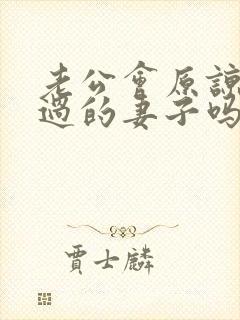 老公會原諒
過的妻子吗
賈士麟